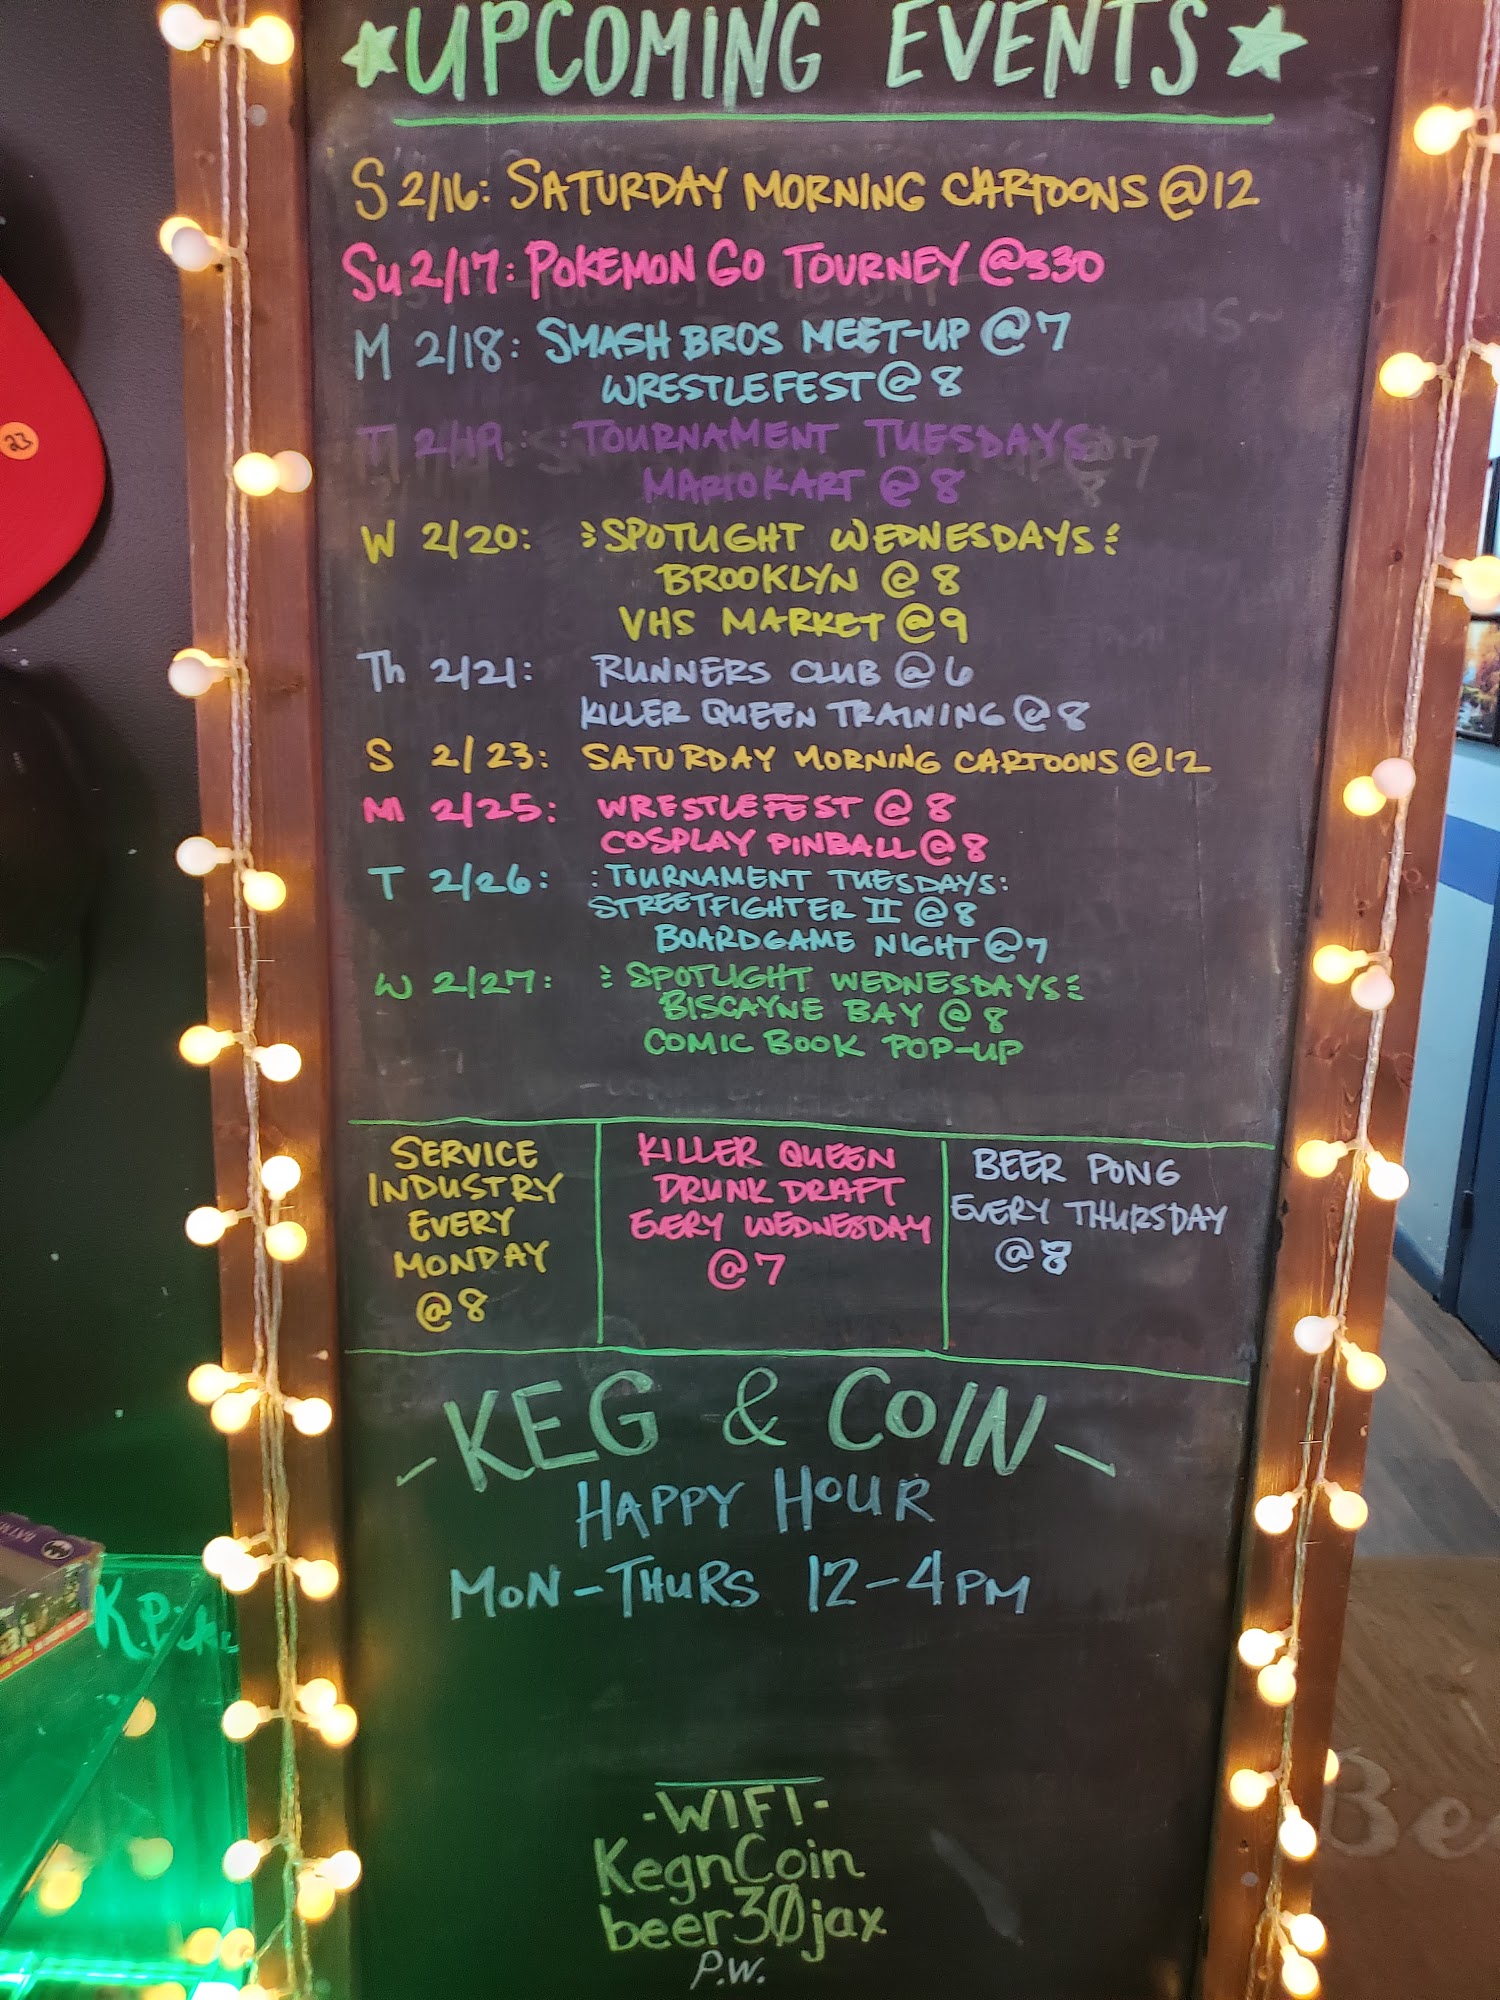 ★UPCOMING EVENTS★
S 2/16: SATURDAY MORNING CARTOONS @12
Su 2/17: POKEMON GO TOURNEY @330
M 2/18: SMASH BROS MEET-UP @7
WRESTLEFEST @ 8
T 2/19: :TOURNAMENT TUESDAYS:
MARIOKART @ 8
W 2/20: SPOTLIGHT WEDNESDAYS
BROOKLYN @ 8
VHS MARKET @ 9
Th 2/21: RUNNERS CLUB @ 6
KILLER QUEEN TRAINING @ 8
S 2/23: SATURDAY MORNING CARTOONS @12
M 2/25: WRESTLEFEST @ 8
COSPLAY PINBALL @ 8
T 2/26: :TOURNAMENT TUESDAYS:
STREETFIGHTER II @ 8
BOARDGAME NIGHT @ 7
W 2/27: SPOTLIGHT WEDNESDAYS
BISCAYNE BAY @ 8
COMIC BOOK POP-UP
SERVICE
INDUSTRY
EVERY
MONDAY
@ 8
KILLER QUEEN
DRUNK DRAFT
EVERY WEDNESDAY
@ 7
BEER PONG
EVERY THURSDAY
@ 8
- KEG & COIN -
HAPPY HOUR
MON - THURS 12-4PM
-WIFI-
KegnCoin
beer30jax
P.W.
23